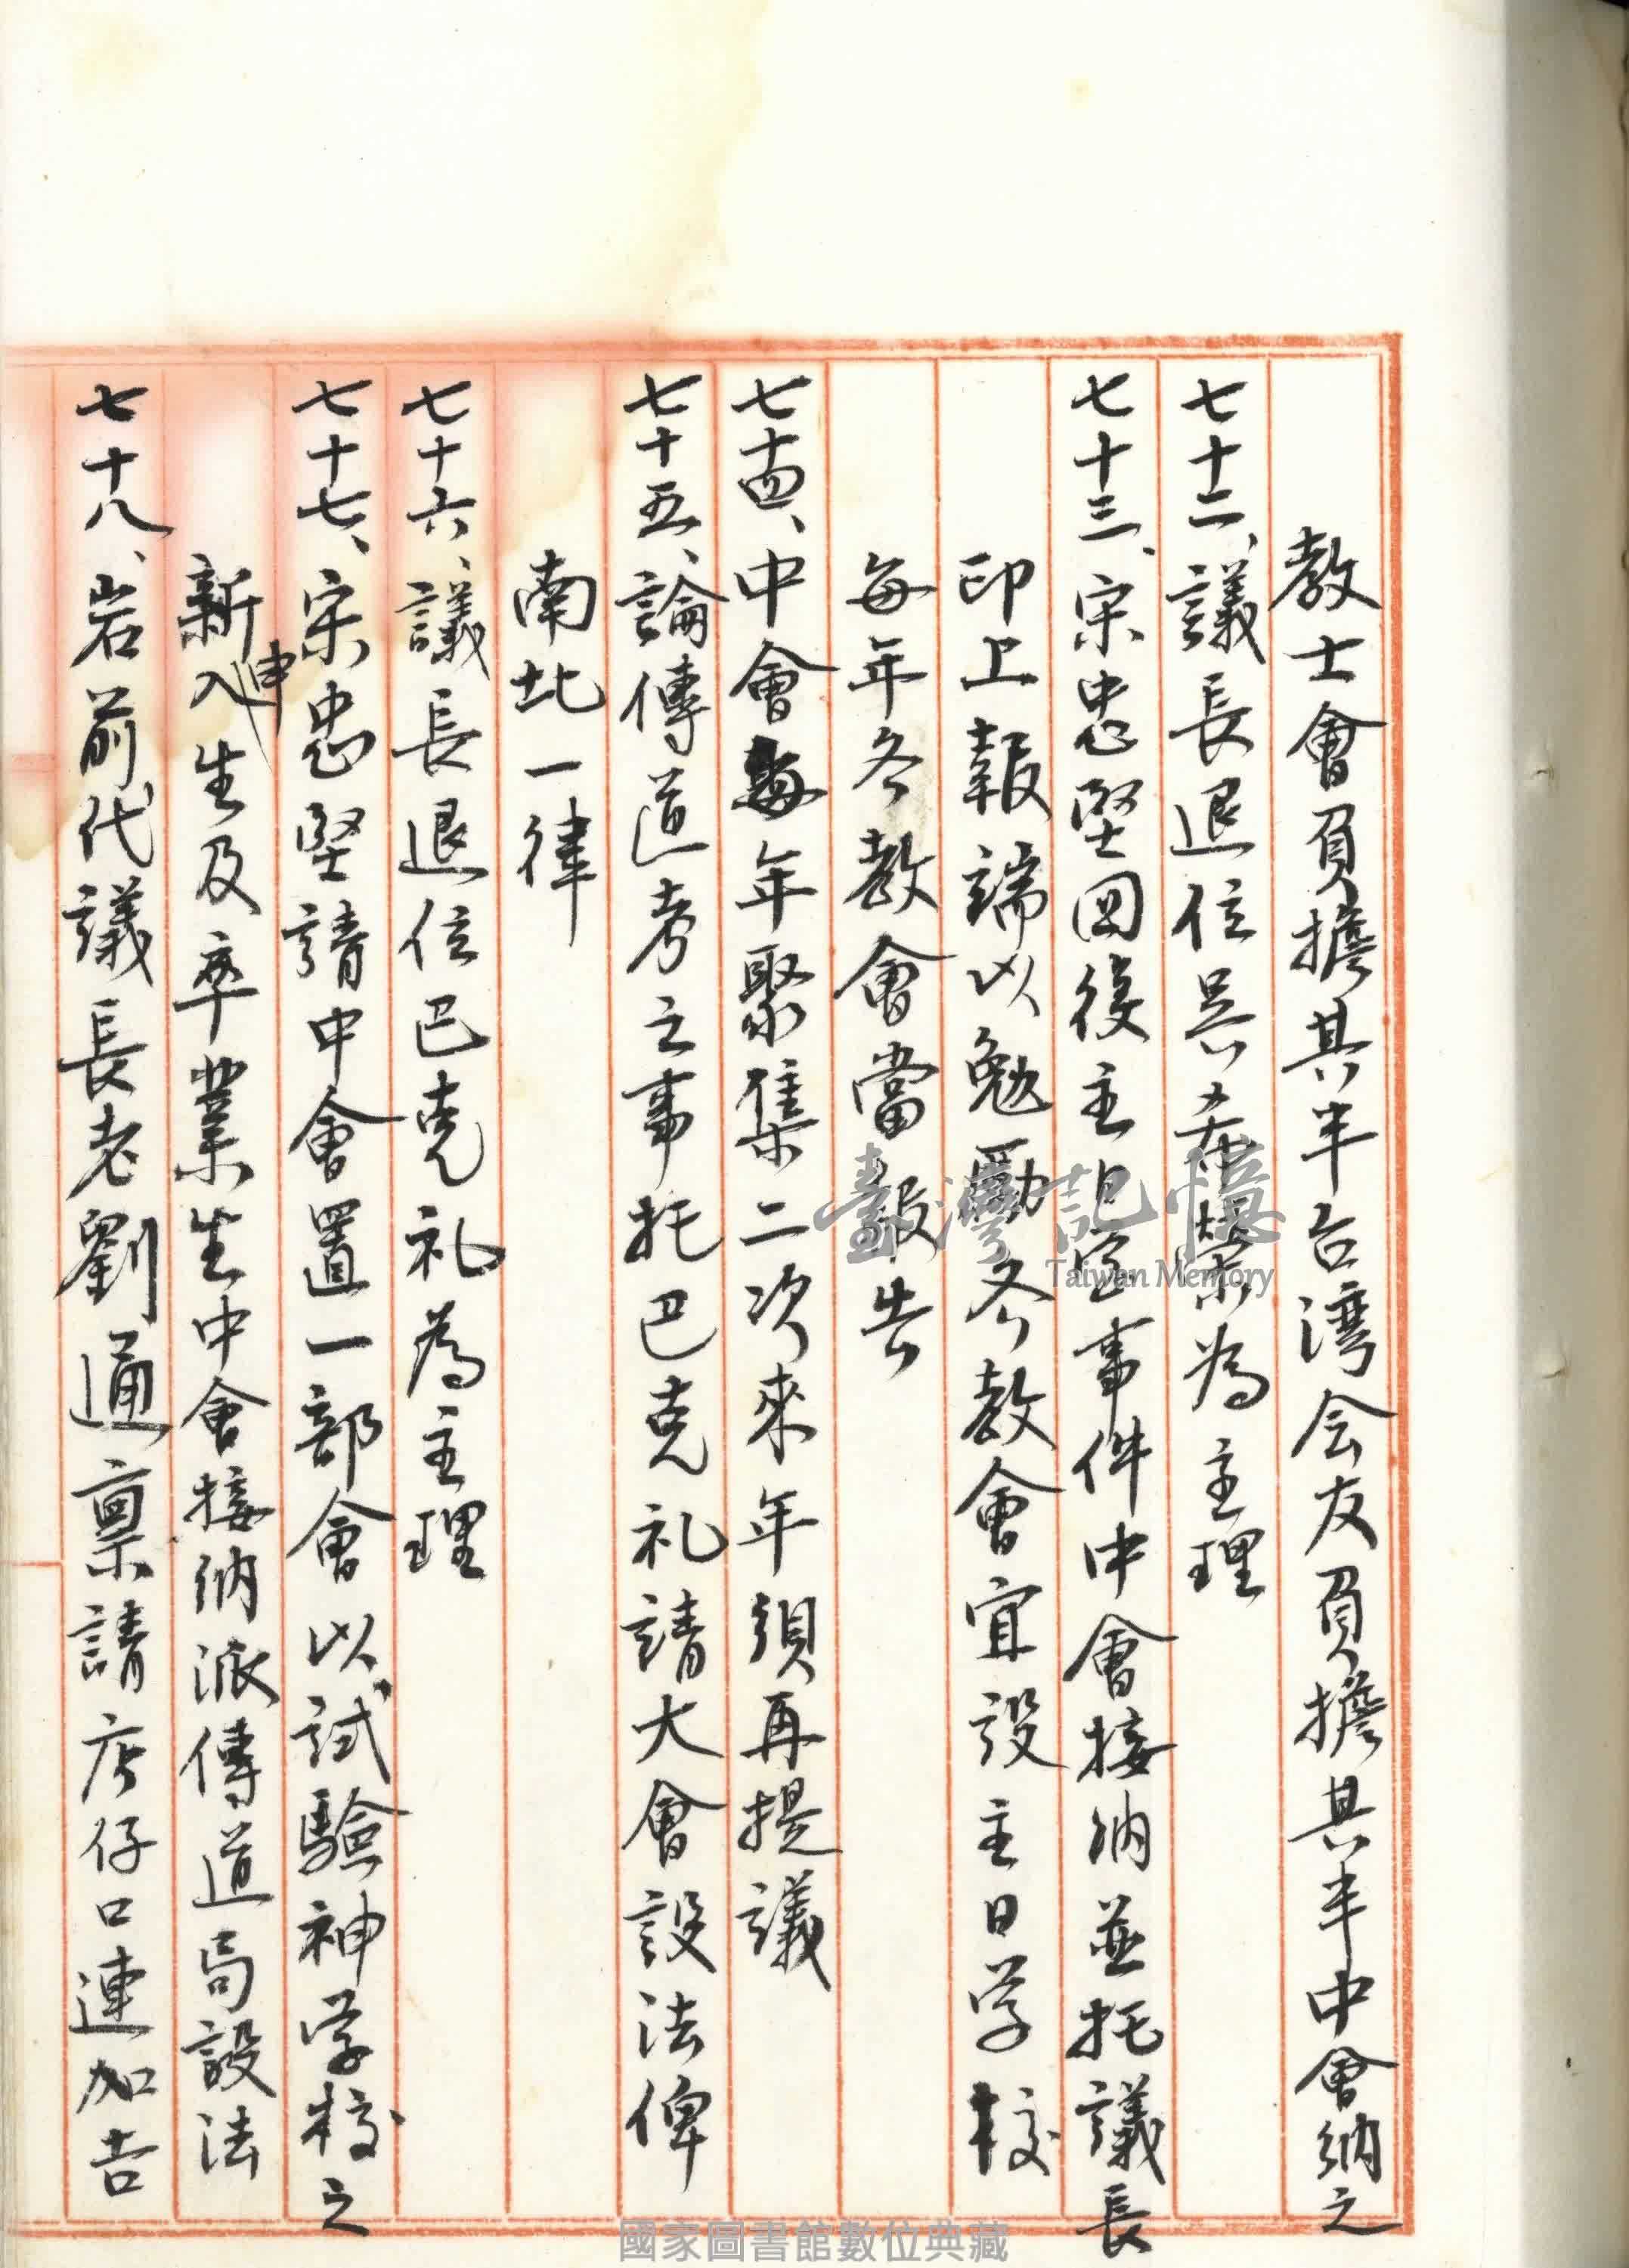 教士會負擔其半台湾会友負擔其半中會納之
七十二、議長退位吳希榮為主理
七十三、宋忠堅回後主日学事件中會接納並托議長
印上報端以勉勵各教會宜設主日学校
每年各教會當報告
七十四、中會每年聚集二次來年須再提議
七十五、論傳道考之事托巴克礼請大會設法俾
南北一律
七十六、議長退位巴克礼為主理
七十七、宋忠堅請中會置一部會以試驗神学校之
新入申生及卒業生中會接納派傳道局設法
七十八、岩前代議長老劉通稟請店仔口連加吉
臺灣記憶
Taiwan Memory
國家圖書館數位典藏